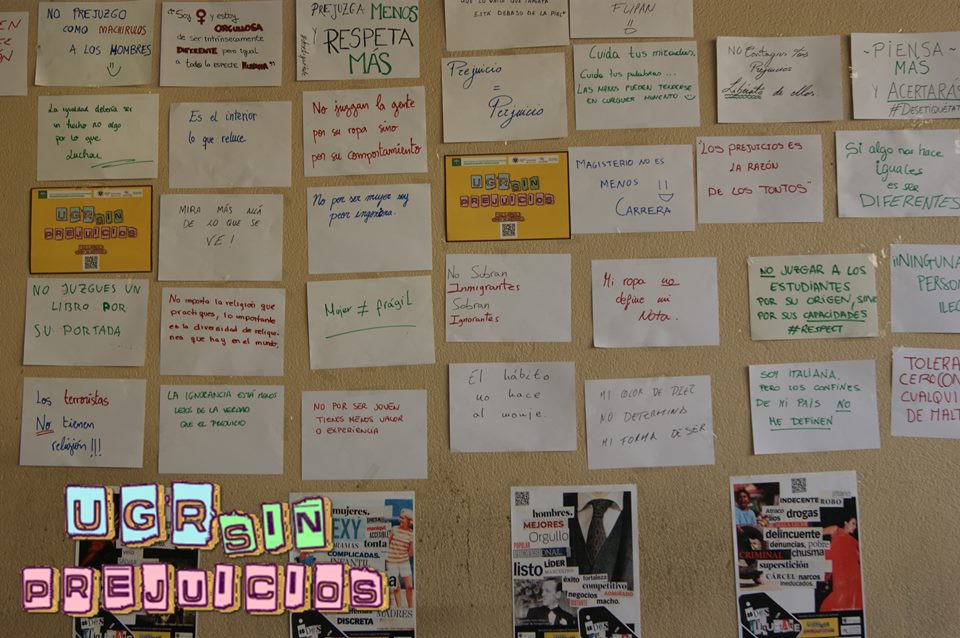 NO PREJUZGO
COMO MACHIRULOS
A LOS HOMBRES
"Soy ♀ y estoy
ORGULLOSA
de ser intrínsecamente
DIFERENTE pero igual
a toda la especie HUMANA"
PREJUZGA MENOS
Y RESPETA
MÁS
ESTÁ DEBAJO DE LA PIEL"
FLIPAN
Prejuicio
=
Perjuicio
Cuida tus miradas,
Cuida tus palabras...
LAS MANOS PUEDEN TENDERSE
EN CUALQUIER MOMENTO
NO Contagies tus
Prejuicios
Libérate de ellos
~PIENSA~
MAS
Y ACERTARÁS
#DESETIQUÉTAT
La igualdad debería ser
un hecho no algo
por lo que
luchar
Es el interior
lo que reluce.
No juzgan la gente
por su ropa sino
por su comportamiento
UGR SIN
PREJUICIOS
MIRA MÁS ALLÁ
DE LO QUE SE
VE!
No por ser mujer soy
peor ingeniera.
UGR SIN
PREJUICIOS
MAGISTERIO NO ES
MENOS !!
CARRERA
"LOS PREJUICIOS ES
LA RAZÓN
DE LOS TONTOS"
SI algo nos hace
iguales
es ser
DIFERENTES
NO JUZGUES UN
LIBRO POR
SU PORTADA
No importa la religión que
practiques, lo importante
es la diversidad de religio-
nes que hay en el mundo.
Mujer ≠ frágil
No Sobran
Inmigrantes
Sobran
Ignorantes
Mi ropa no
define mi
Nota.
NO JUZGAR A LOS
ESTUDIANTES
POR SU ORIGEN, SINO
POR SUS CAPACIDADES
#RESPECT
¡¡NINGUNA
PERSON
ILEG
Los terroristas
No tienen
religión!!!
LA IGNORANCIA ESTÁ MENOS
LEJOS DE LA VERDAD
QUE EL PREJUICIO
NO POR SER JOVEN
TIENES MENOS VALOR
O EXPERIENCIA
El hábito
no hace
al monje.
MI COLOR DE PIEL
NO DETERMINA
MI FORMA DE SER
SOY ITALIANA,
PERO LOS CONFINES
DE MI PAÍS NO
ME DEFINEN
TOLERA
CERO CON
CUALQUI
DE MALT
UGR SIN
PREJUICIOS
mujeres.
SEXY
tonta
COMPLICADAS
MADRES
DISCRETA
hombres.
MEJORES
Orgullo
listo LÍDER
éxito fortaleza
competitivo
negocios
macho.
gitano
INDECENTE ROBO
Atraco
drogas
delincuente
denuncias, pobre
CRIMINAL chusma
superstición
CÁRCEL narcos
ineducados.